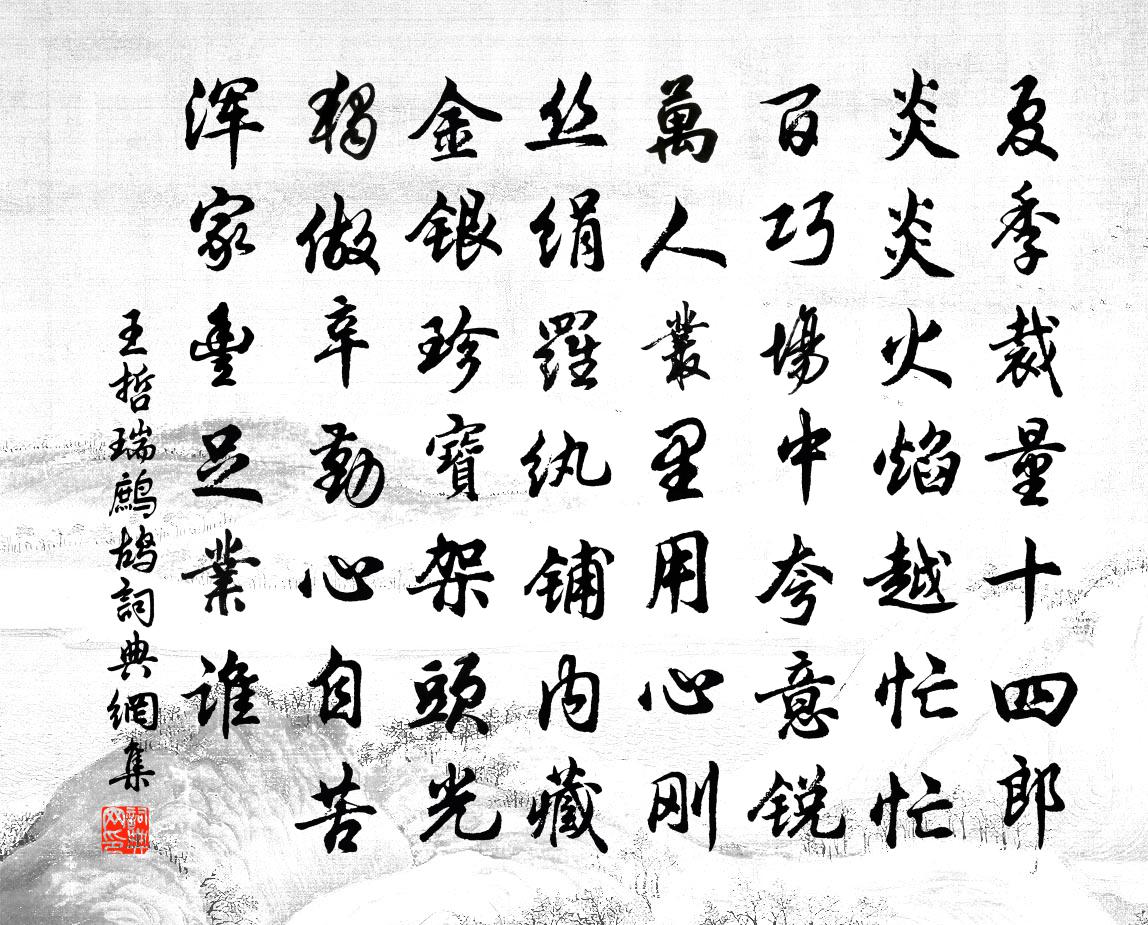 夏季裁量十四郎
炎炎火焰越忙忙
百巧場中夸意锐
萬人叢里用心刚
丝绢羅紈铺内藏
金银珍寶架頭光
獨做辛勤心自苦
浑家豊足業谁
王哲瑞鷓鴣詞典網集